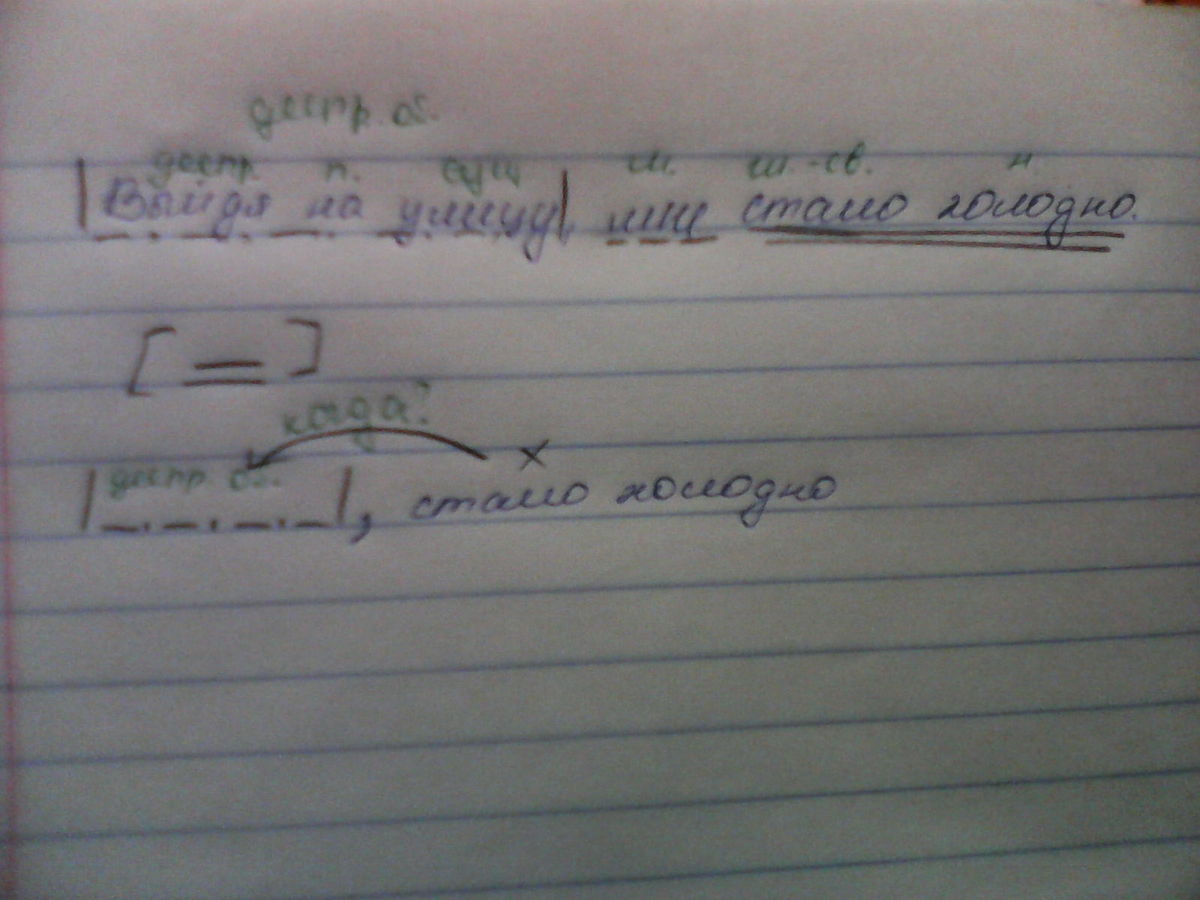 деепр. об.
деепр. п. сущ м. гл.-св. н.
|Выйдя на улицу|, мне стало холодно.
[ = ]
когда?
деепр. об. х
| |, стало холодно